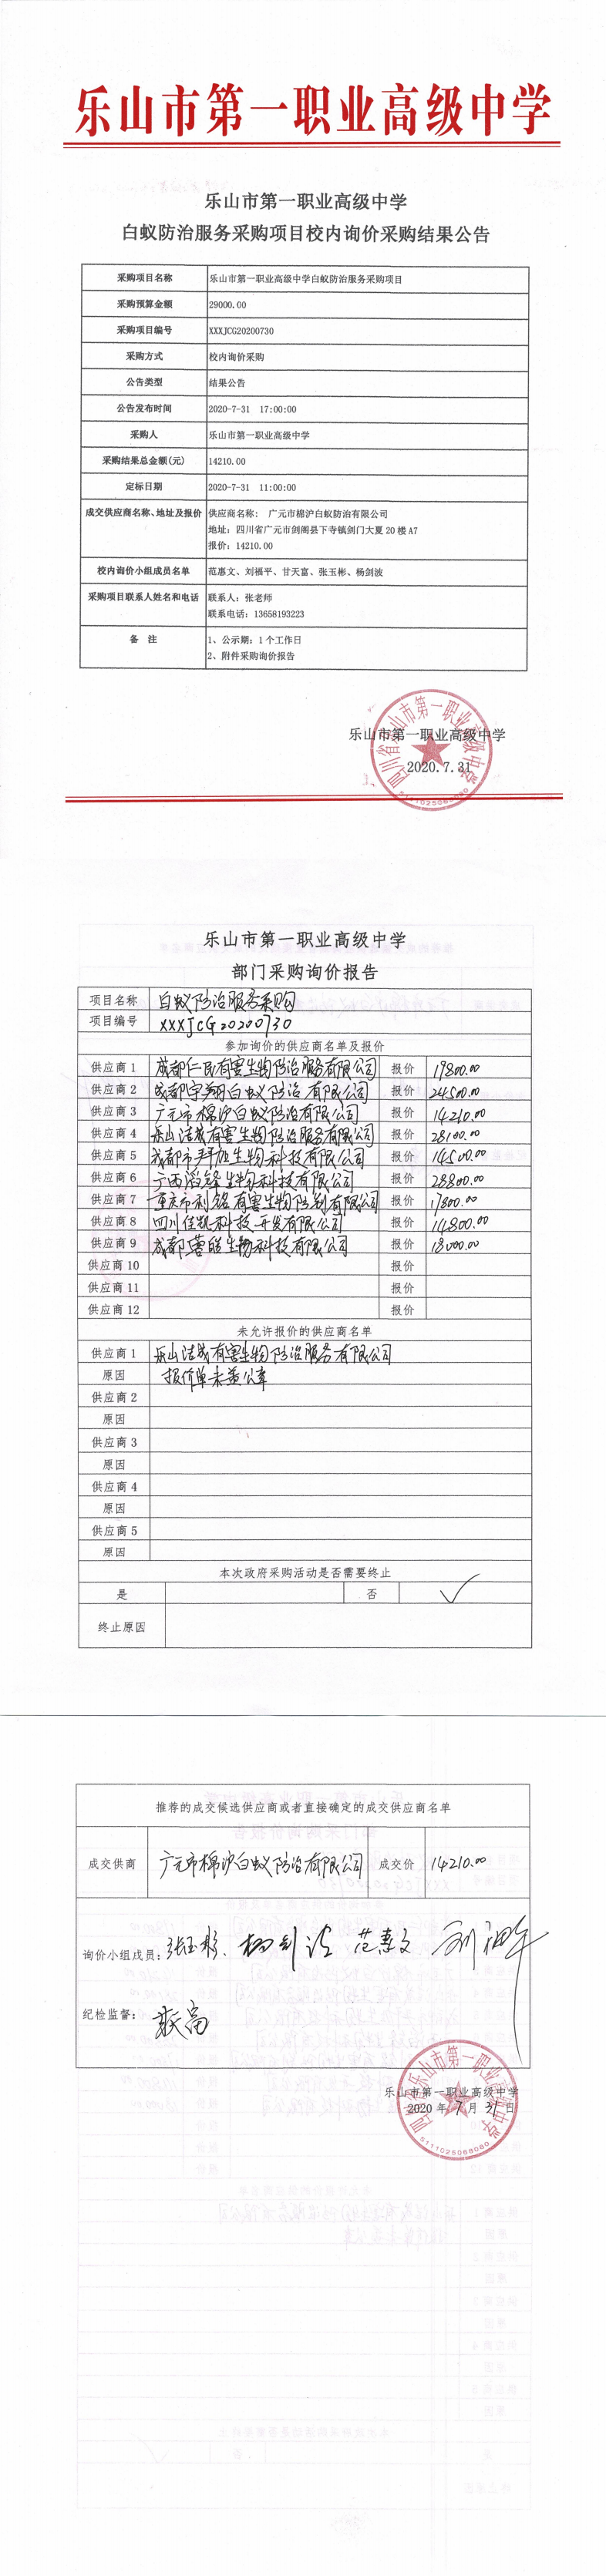 乐山市第一职业高级中学
乐山市第一职业高级中学
白蚁防治服务采购项目校内询价采购结果公告
采购项目名称 乐山市第一职业高级中学白蚁防治服务采购项目
采购预算金额 29000.00
采购项目编号 XXXJCG20200730
采购方式 校内询价采购
公告类型 结果公告
公告发布时间 2020-7-31 17:00:00
采购人 乐山市第一职业高级中学
采购结果总金额(元) 14210.00
定标日期 2020-7-31 11:00:00
成交供应商名称、地址及报价 供应商名称: 广元市棉沪白蚁防治有限公司
地址: 四川省广元市剑阁县下寺镇剑门大厦 20 楼 A7
报价: 14210.00
校内询价小组成员名单 范惠文、刘福平、甘天富、张玉彬、杨剑波
采购项目联系人姓名和电话 联系人: 张老师
联系电话: 13658193223
备 注 1、公示期: 1 个工作日
2、附件采购询价报告
乐山市第一职业高级中学
2020.7.31
四川省乐山市第一职业高级中学
5111025068080
乐山市第一职业高级中学
部门采购询价报告
项目名称 白蚁防治服务采购
项目编号 XXXJCG20200730
参加询价的供应商名单及报价
供应商 1 成都仁民有害生物防治服务有限公司 报价 19800.00
供应商 2 成都宇翔白蚁防治有限公司 报价 24500.00
供应商 3 广元市棉沪白蚁防治有限公司 报价 14210.00
供应商 4 乐山洁城有害生物防治服务有限公司 报价 28100.00
供应商 5 成都市 生物科技有限公司 报价 14500.00
供应商 6 广西滔锋生物科技有限公司 报价 28800.00
供应商 7 重庆市利铭有害生物防制有限公司 报价 17800.00
供应商 8 四川佳凯科技开发有限公司 报价 14800.00
供应商 9 成都 生物科技有限公司 报价 18000.00
供应商 10 报价
供应商 11 报价
供应商 12 报价
未允许报价的供应商名单
供应商 1 乐山洁城有害生物防治服务有限公司
原因 报价单未盖公章
供应商 2
原因
供应商 3
原因
供应商 4
原因
供应商 5
原因
本次政府采购活动是否需要终止
是 否 ✓
终止原因
推荐的成交候选供应商或者直接确定的成交供应商名单
成交供商 广元市棉沪白蚁防治有限公司 成交价 14210.00
询价小组成员: 张玉彬、杨剑波 范惠文 刘福平
纪检监督:
乐山市第一职业高级中学
2020 年 7 月 31 日
四川省乐山市第一职业高级中学
5111025068080